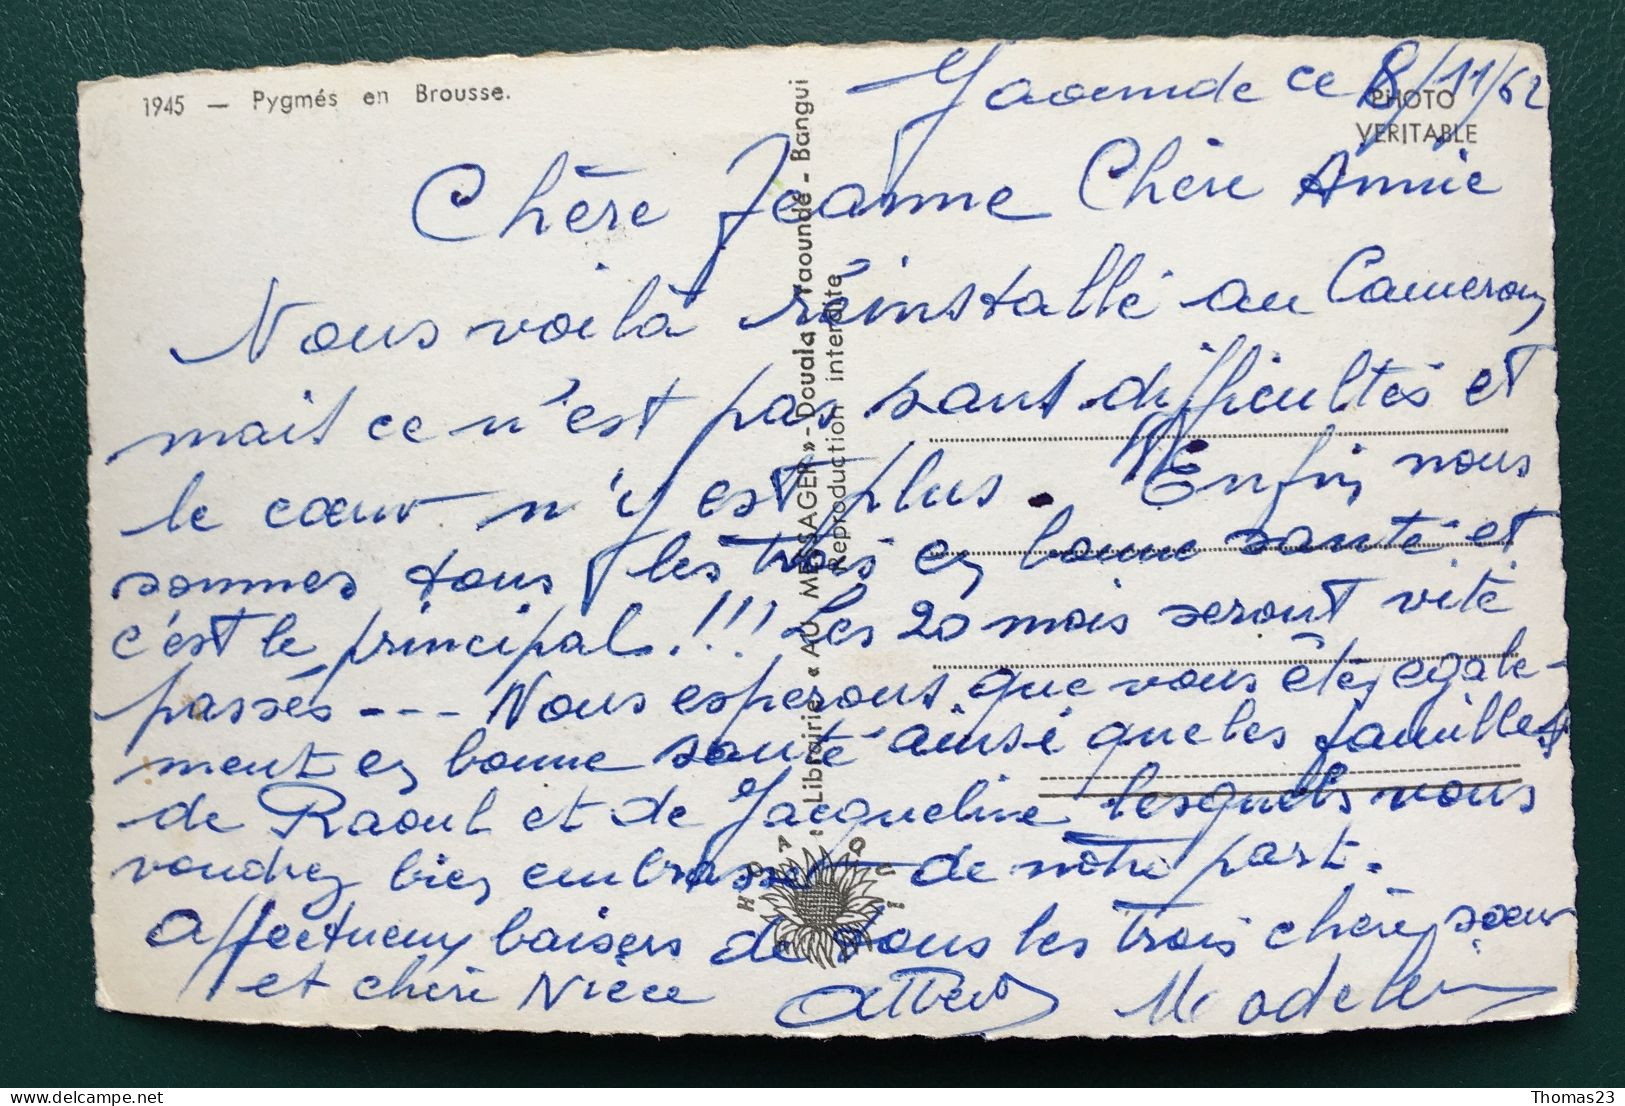 1945 — Pygmés en Brousse.
PHOTO
VERITABLE
Yaounde ce 8/11/62
Chère Jeanne Chère Annie
Nous voilà réinstallé au Cameroun
mait ce n'est pas sant difficultés et
le cœur n'y est plus. Enfin nous
sommes tous les trois en bonne santé et
c'est le principal!!! Les 20 mois seront vite
passés --- Nous esperons que vous êtes egale-
ment en bonne santé ainsi que les familles
de Raoul et de Jacqueline lesquels vous
voudrez bien embrasser de notre part.
Affectueux baisers de nous les trois chère sœur
et chère Nièce Albert Madeleine
Librairie « AU MESSAGER » - Douala - Yaoundé - Bangui
Reproduction interdite
HOA-QUI
delcampe.net
Thomas23